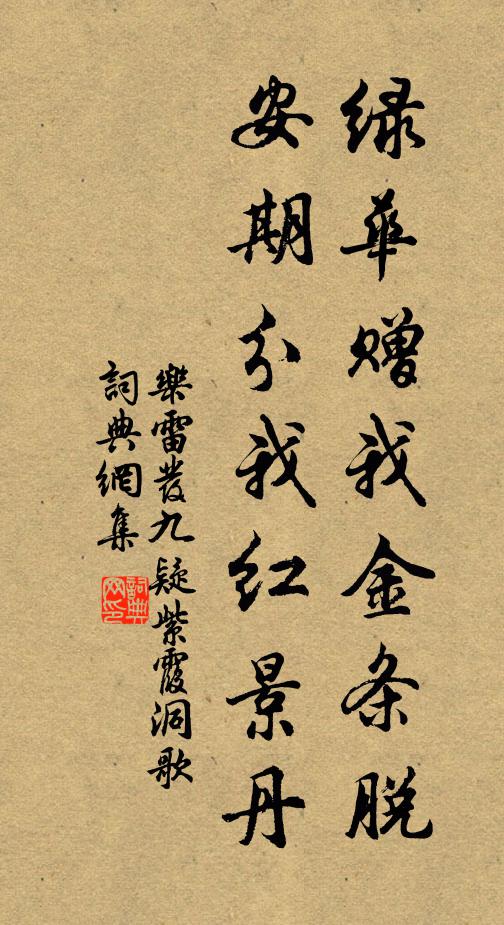 绿華赠我金条脱
安期分我红景丹
樂雷發九疑紫霞洞歌
詞典網集
詞典網印